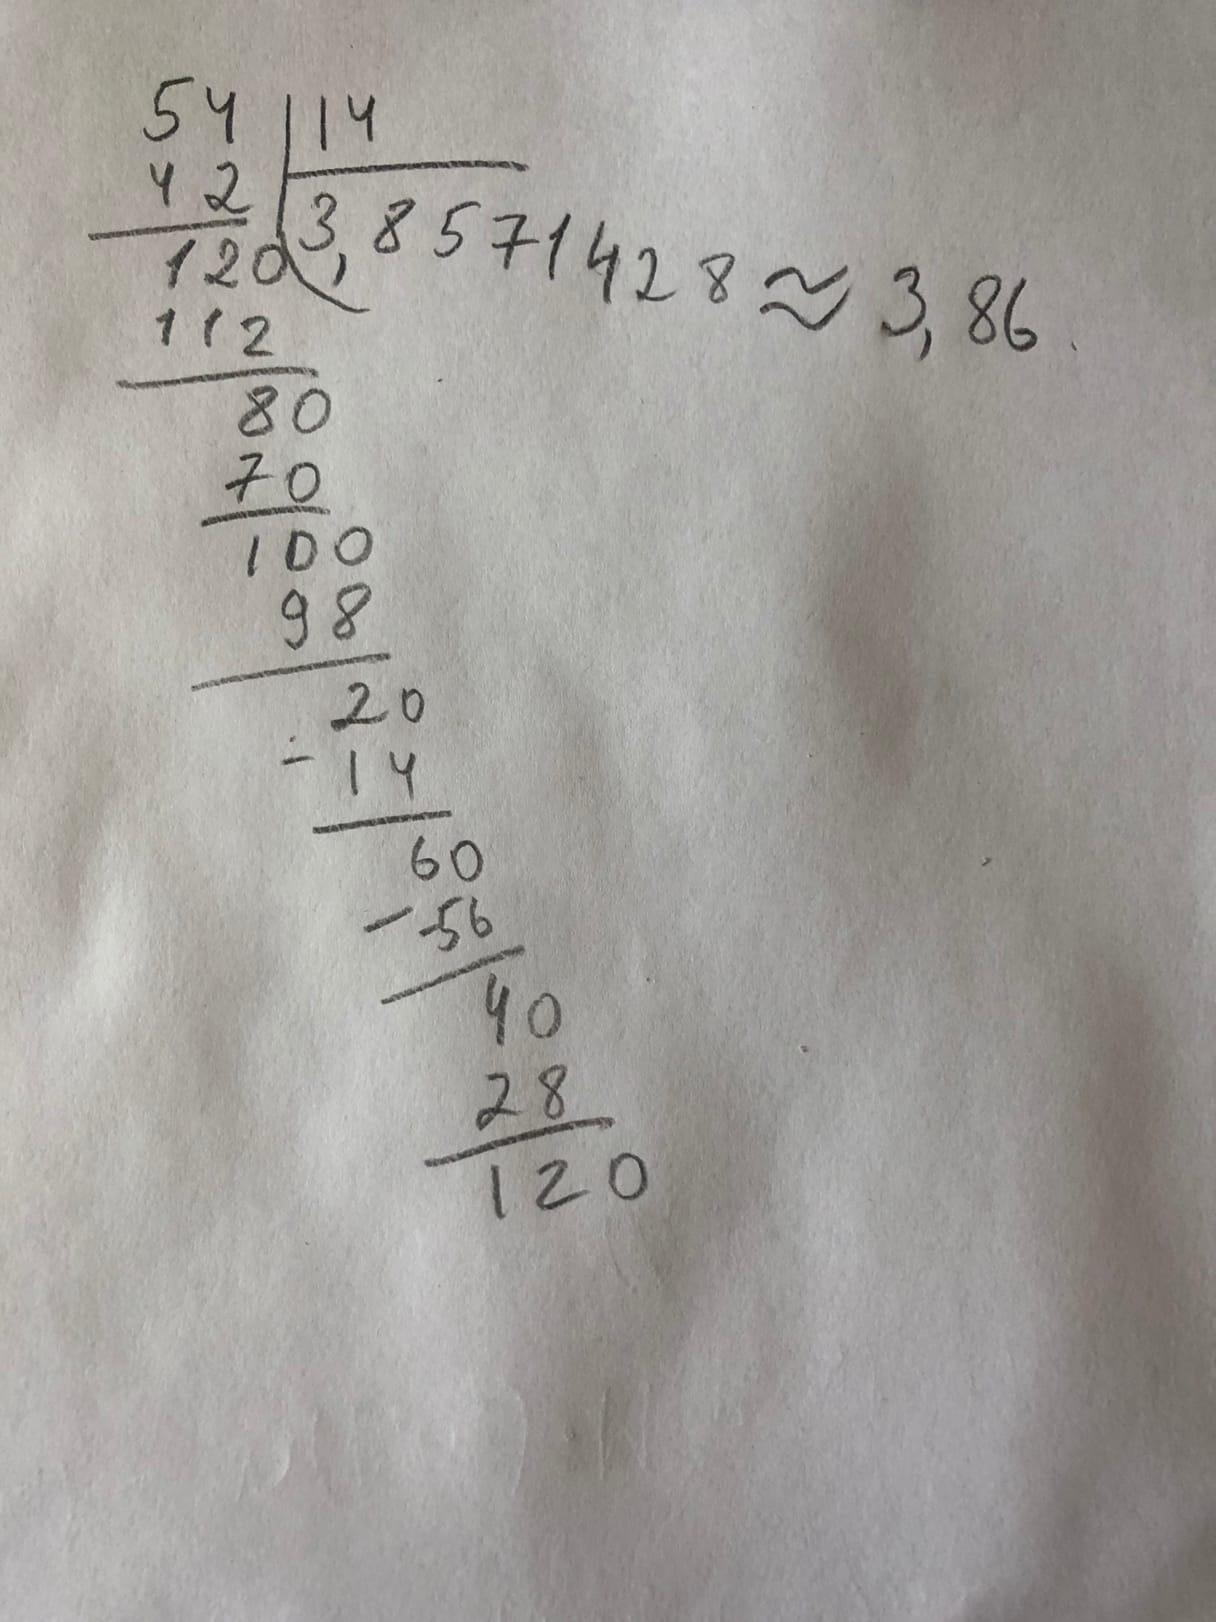 54 14
42 3,8571428 ≈ 3,86.
120
112
80
70
100
98
20
- 14
60
- 56
40
28
120